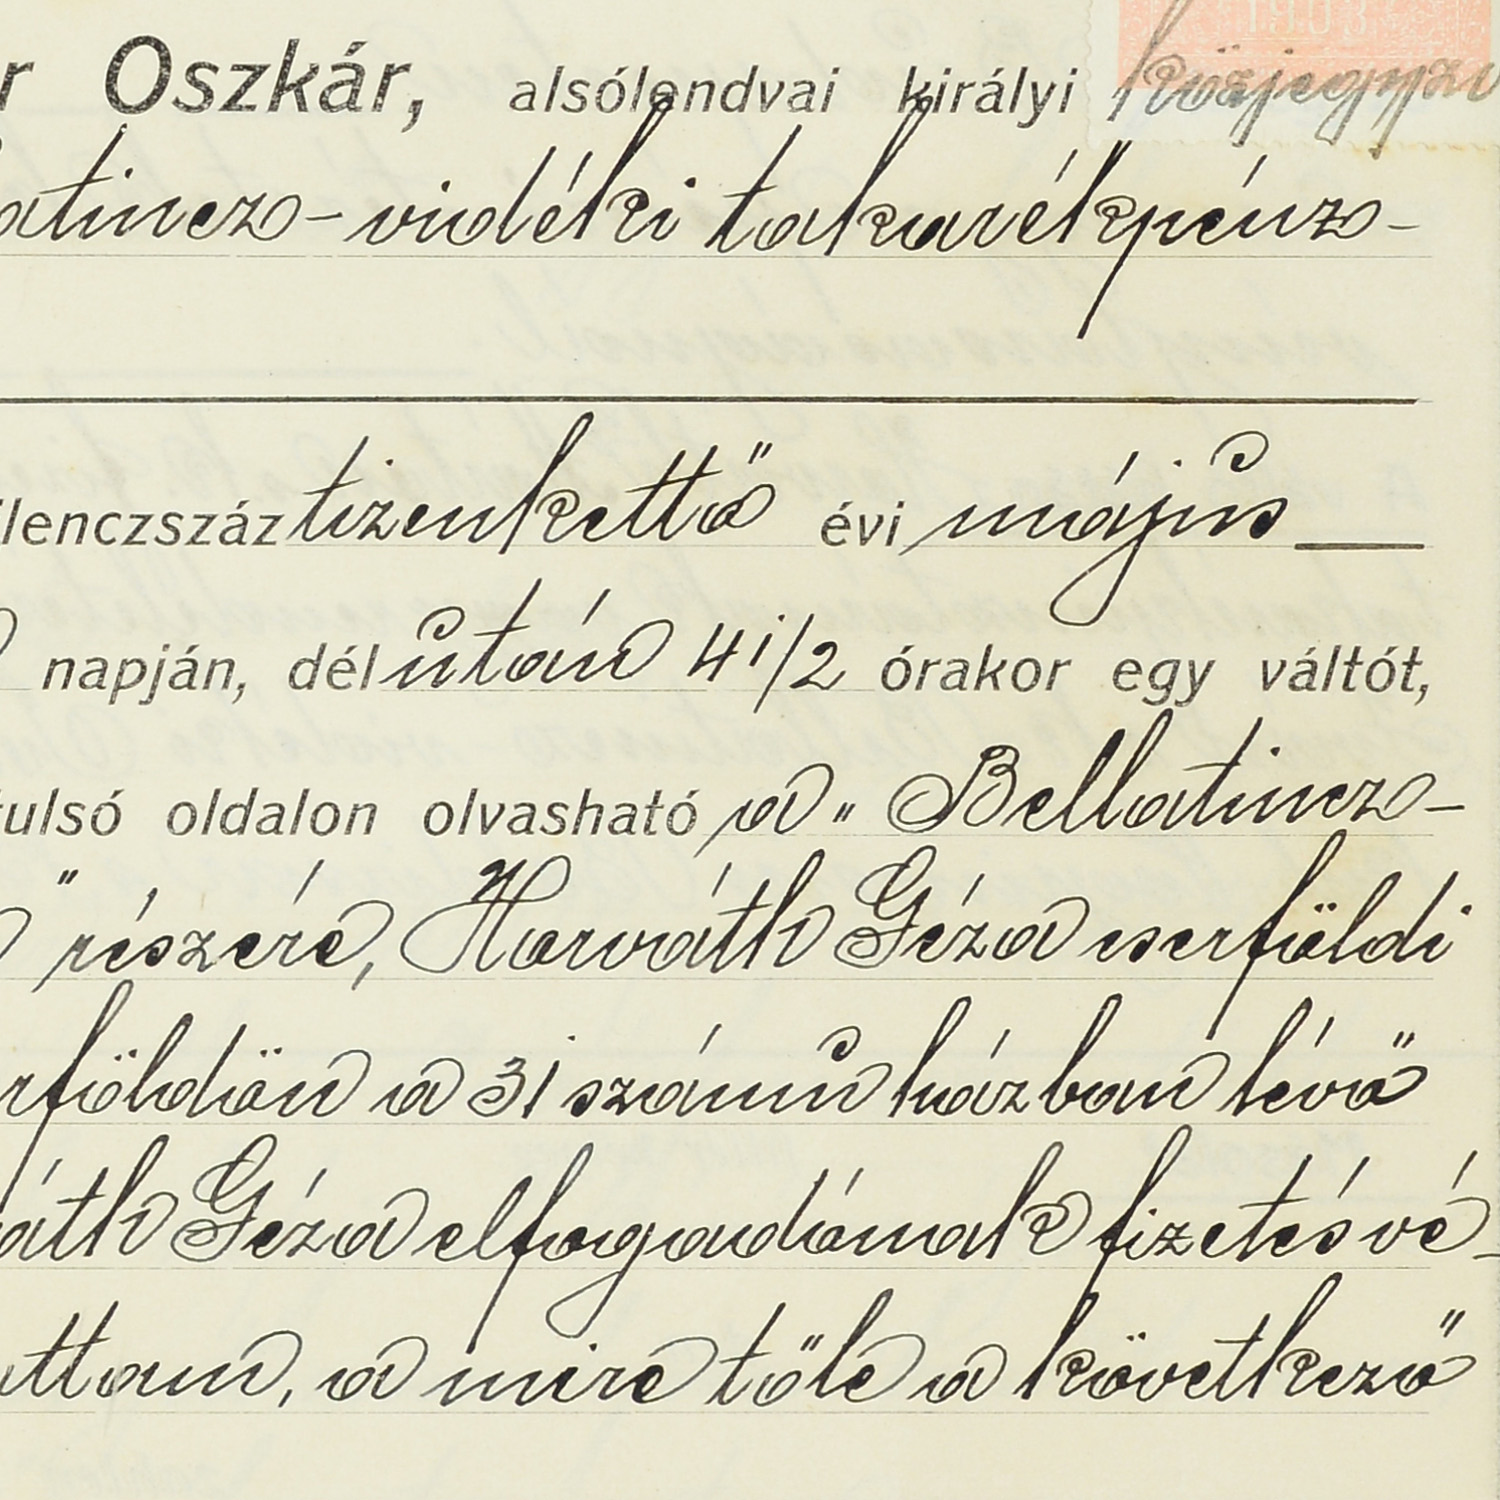 r Oszkár, alsólendvai királyi közjegyző
atincz-vidéki takarékpénz-
ilenczszáz tizenkettő évi május
napján, délután 4 1/2 órakor egy váltót,
tulsó oldalon olvasható a „Bellatincz-
" részére, Horváth Géza cserföldi
rföldön a 31 számu házban lévő
áth Géza elfogadónak fizetés vé-
attam, a mire tőle a következő